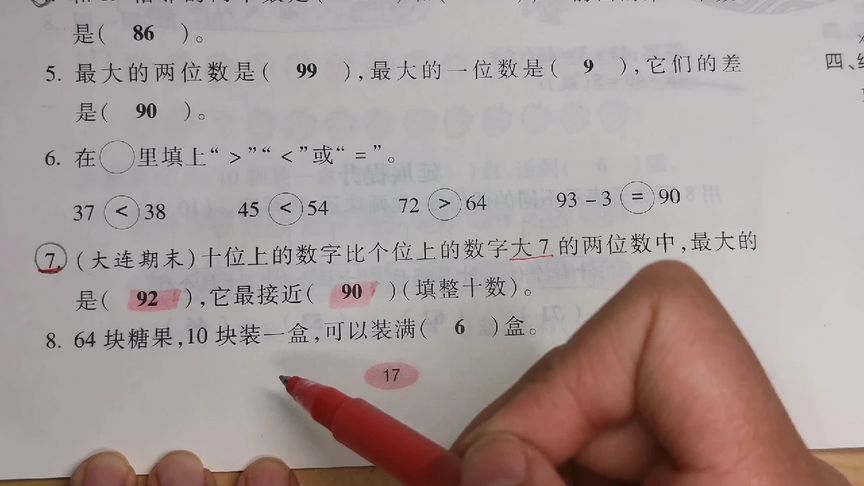 是( 86 )。
5. 最大的两位数是( 99 ),最大的一位数是( 9 ),它们的差
四、
是( 90 )。
6. 在○里填上“>”“<”或“=”。
37 < 38 45 < 54 72 > 64 93-3 = 90
7. (大连期末)十位上的数字比个位上的数字大7的两位数中,最大的
是( 92 ),它最接近( 90 )(填整十数)。
8. 64块糖果,10块装一盒,可以装满( 6 )盒。
17